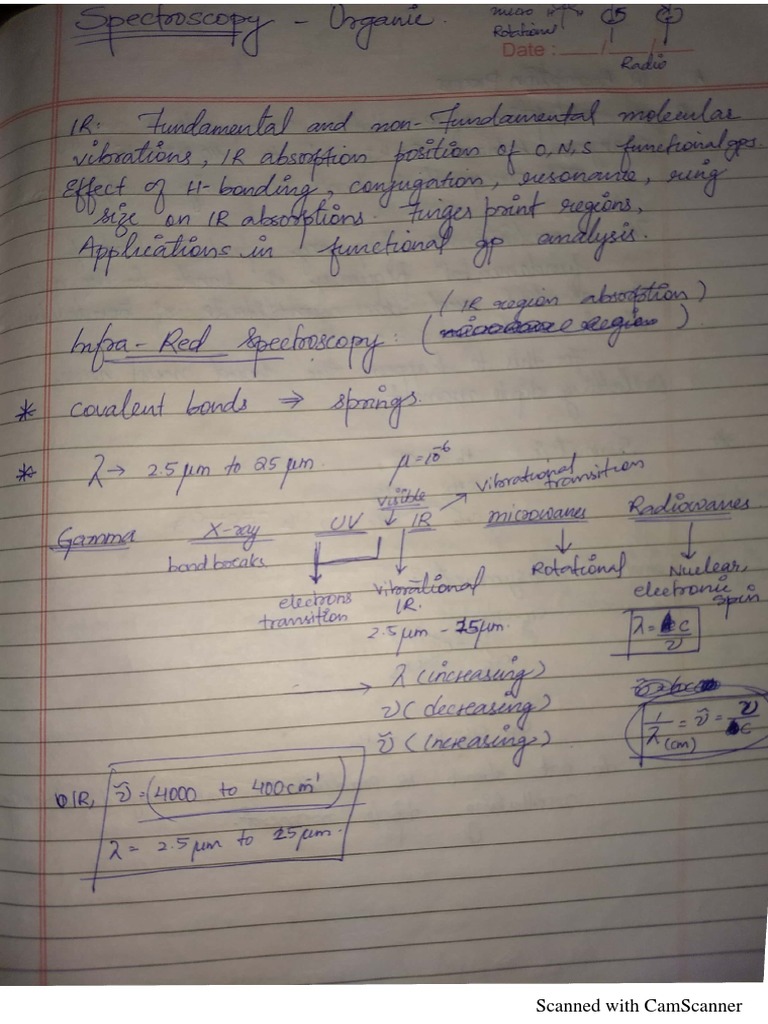 Spectroscopy - Organic.
micro
Rotational
Date : __/__/__
Radio
IR: Fundamental and non-Fundamental molecular
vibrations, IR absorption position of O,N,S functional gps.
Effect of H-bonding, conjugation, resonance, ring
size on IR absorptions. Finger print regions,
Applications in functional gp analysis.
(IR region absorption)
Infra-Red Spectroscopy: (microwave region).
* covalent bonds ⇒ springs.
* λ → 2.5 μm to 25 μm. μ = 10⁻⁶
visible → vibrational transition
Gamma X-ray UV IR microwaves Radiowaves
bond breaks
electrons transition
vibrational IR.
Rotational
Nuclear, electronic spin
2.5 μm - 15 μm.
λ = c/ν
→ λ (increasing)
ν (decreasing)
ν̄ (increasing)
1/λ(cm) = ν̄ = ν/c
IR, ν̄ = (4000 to 400 cm⁻¹)
λ = 2.5 μm to 25 μm.
Scanned with CamScanner